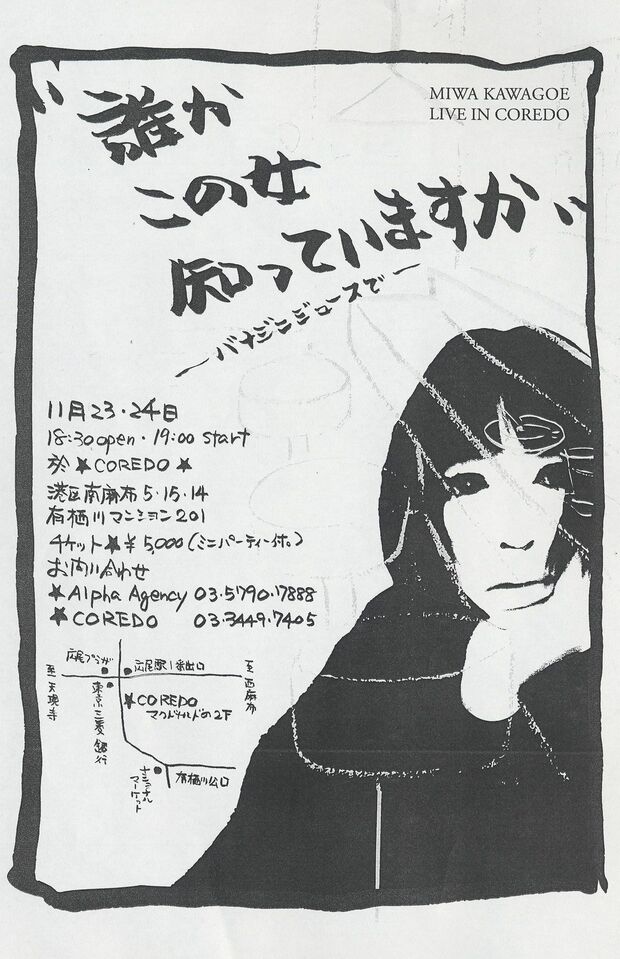 MIWA KAWAGOE
LIVE IN COREDO
"誰か
この女
知っていますか"
—バナジンジュースで—
11月23・24日
18:30open・19:00 start
於★COREDO★
港区南麻布5・15・14
有栖川マンション201
チケット★¥5,000(ミニパーティー付。)
お問い合わせ
★Alpha Agency 03.5790.7888
★COREDO 03.3449.7405
広尾プラザ
広尾駅1番出口
至天現寺
至西麻布
東京三菱銀行
★COREDO
マクドナルドの2F
ナショナル
マーケット
有栖川公園